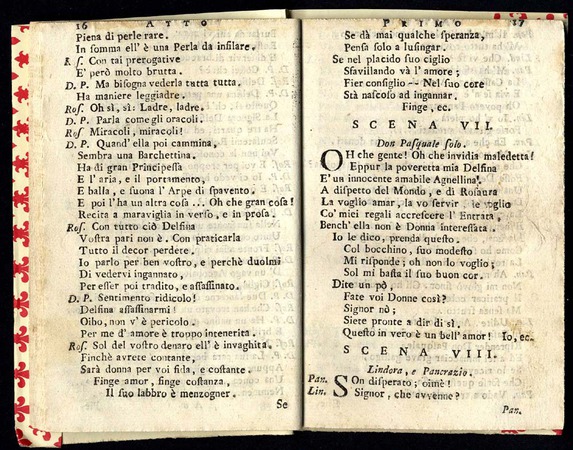 16 ATTO
Piena di perle rare.
In somma ell' è una Perla da infilare.
R. s. Con tai prerogative
E' però molto brutta.
D. P. Ma bisogna vederla tutta tutta.
Ha maniere leggiadre.
Ros. Oh sì, sì: Ladre, ladre.
D. P. Parla come gli oracoli.
Ros. Miracoli, miracoli!
D. P. Quand' ella poi cammina,
Sembra una Barchettina.
Ha di gran Principessa
E l' aria, e il portamento,
E balla, e suona l' Arpe di spavento,
E poi l' ha un altra cosa ... Oh che gran cosa!
Recita a maraviglia in verso, e in prosa.
Ros. Con tutto ciò Delfina
Vostra pari non è. Con praticarla
Tutto il decor perdete.
Io parlo per ben vostro, e perchè duolmi
Di vedervi ingannato,
Per esser poi tradito, e assassinato.
D. P. Sentimento ridicolo!
Delfina assassinarmi!
Oibo, non v' è pericolo.
Per me d' amore è troppo incenerita.
Ros. Sol del vostro denaro ell' è invaghita.
Finchè avrete contante,
Sarà donna per voi fida, e costante.
Finge amor, finge costanza,
Il suo labbro è menzogner.
Se
PRIMO 17
Se dà mai qualche speranza,
Pensa solo a lusingar.
Se nel placido suo ciglio
Sfavillando và l' amore;
Fier consiglio -- Nel suo core
Stà nascoso ad ingannar.
Finge, ec.
SCENA VII.
Don Pasquale solo.
OH che gente! Oh che invidia maledetta!
Eppur la poveretta mia Delfina
E' un innocente amabile Agnellina.
A dispetto del Mondo, e di Rosaura
La voglio amar, la vo servir, le voglio
Co' miei regali accrescere l' Entrata,
Bench' ella non è Donna interessata.
Io le dico, prenda questo.
Col bocchino, suo modesto
Mi risponde; oh non lo voglio;
Sol mi basta il suo buon cor.
Dite un pò,
Fate voi Donne così?
Signor nò;
Siete pronte a dir di sì.
Questo in vero è un bell' amor! Io, ec.
SCENA VIII.
Lindora, e Pancrazio.
Pan. SOn disperato; oimè!
Lin. Signor, che avvenne?
Pan.